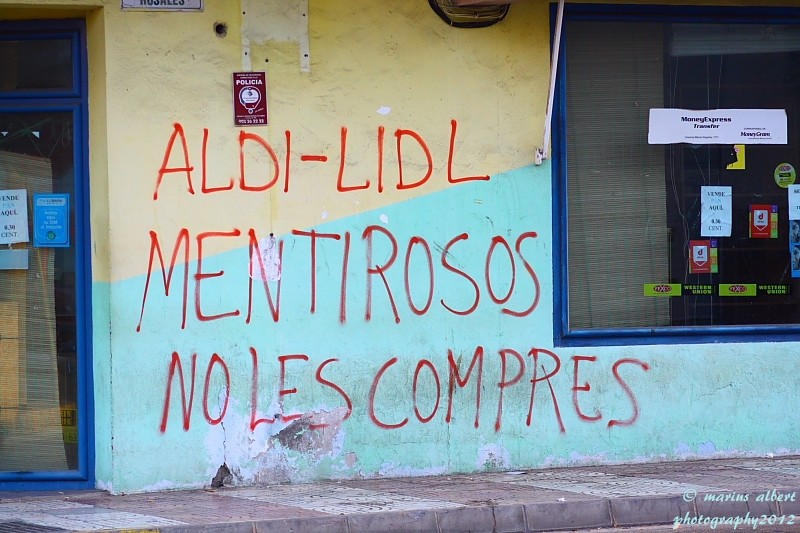 ROSALES
POLICIA
902 36 22 22
ALDI-LIDL
MENTIROSOS
NO LES COMPRES
MoneyExpress
Transfer
MoneyGram
VENDE
PAN
AQUÍ
0.30
CENT.
VENDE
PAN
AQUÍ
0.30
WESTERN
UNION
WESTERN
UNION
© marius albert
photography2012